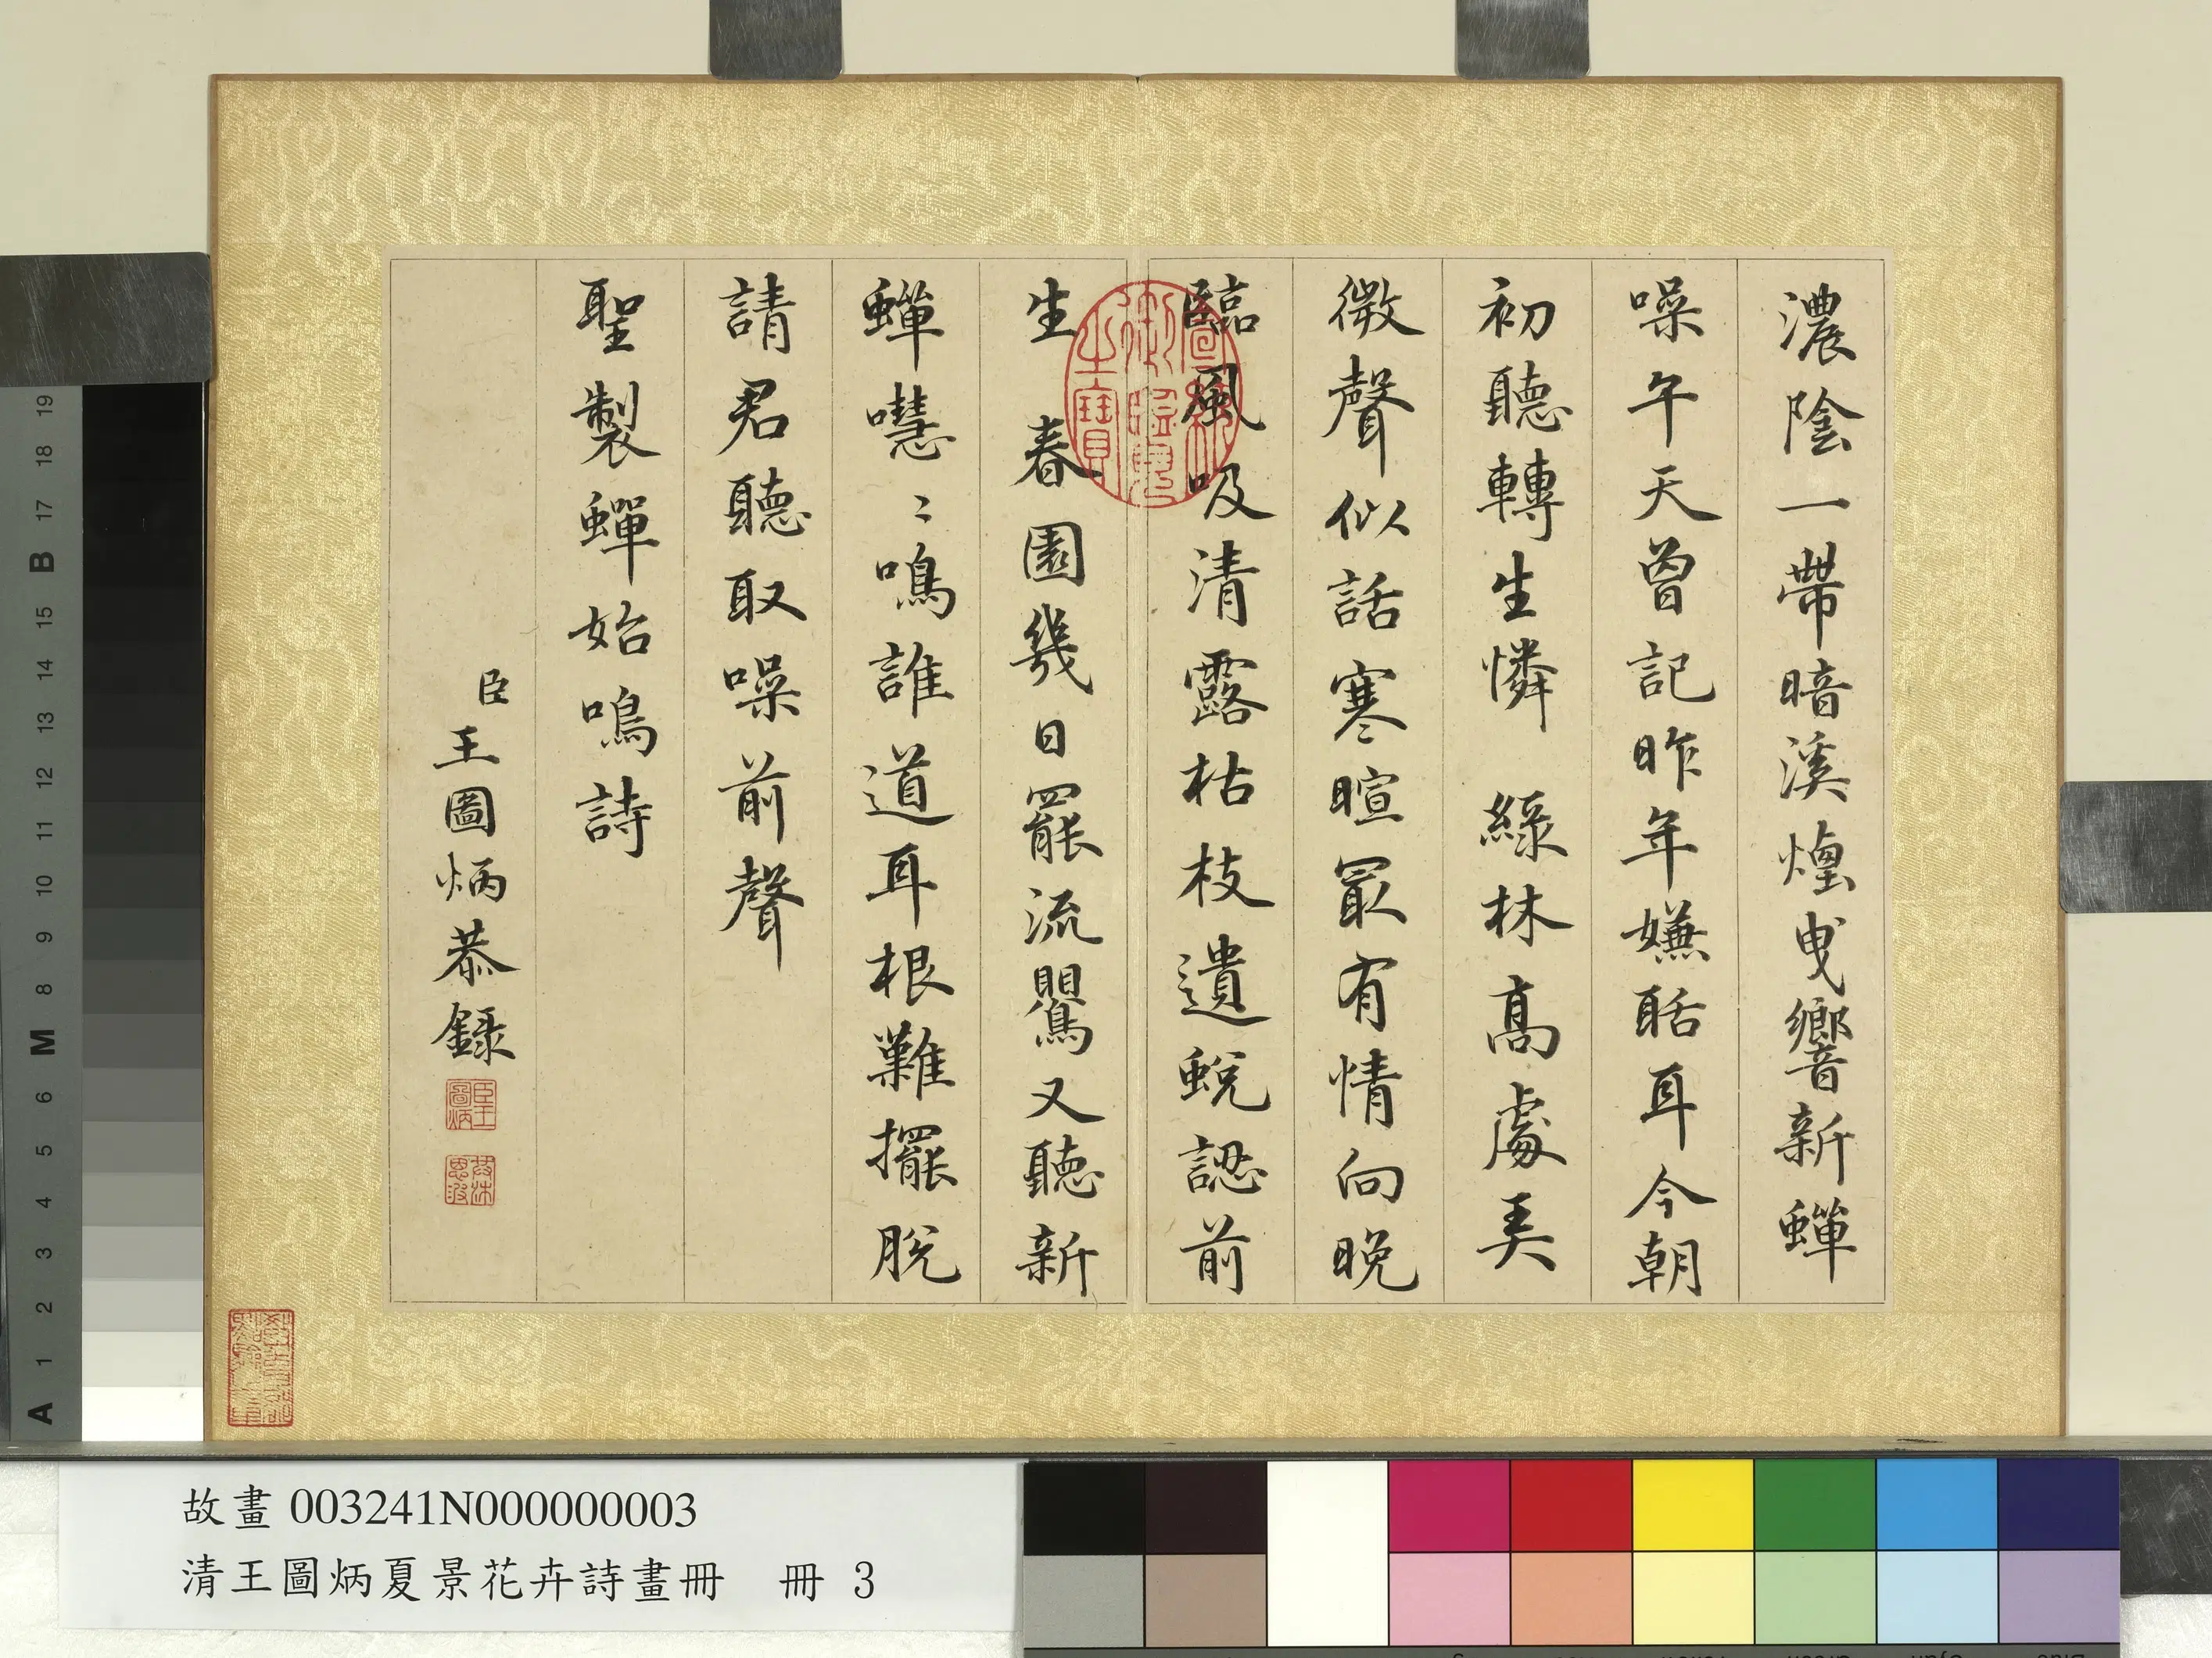 濃陰一帶暗溪煙曳響新蟬
噪午天曾記昨年嫌聒耳今朝
初聽轉生憐 綠林高處美
微聲似話寒暄最有情向晚
臨風吸清露枯枝遺蛻認前
生 春園幾日罷流鸎又聽新
蟬嘒〻鳴誰道耳根難擺脫
請君聽取噪前聲
聖製蟬始鳴詩
臣王圖炳恭錄
臣王圖炳
御書房鑑藏寶
故畫 003241N000000003
清王圖炳夏景花卉詩畫冊 冊 3
19
18
17
B
15
14
13
12
11
10
9
8
M
6
5
4
3
2
1
A